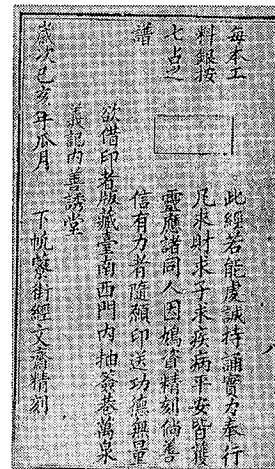 每本工
料銀按
七占之
譜
此經若能虔誠持誦實力奉行
凡求財求子求疾病平安皆獲
靈應諸同人因鳩資精刻倘善
信有力者隨願印送功德無量
欲借印者版藏臺南西門內抽簽巷萬泉
義記內善誘堂
歲次己亥年瓜月 下帆藔街經文齋精刻